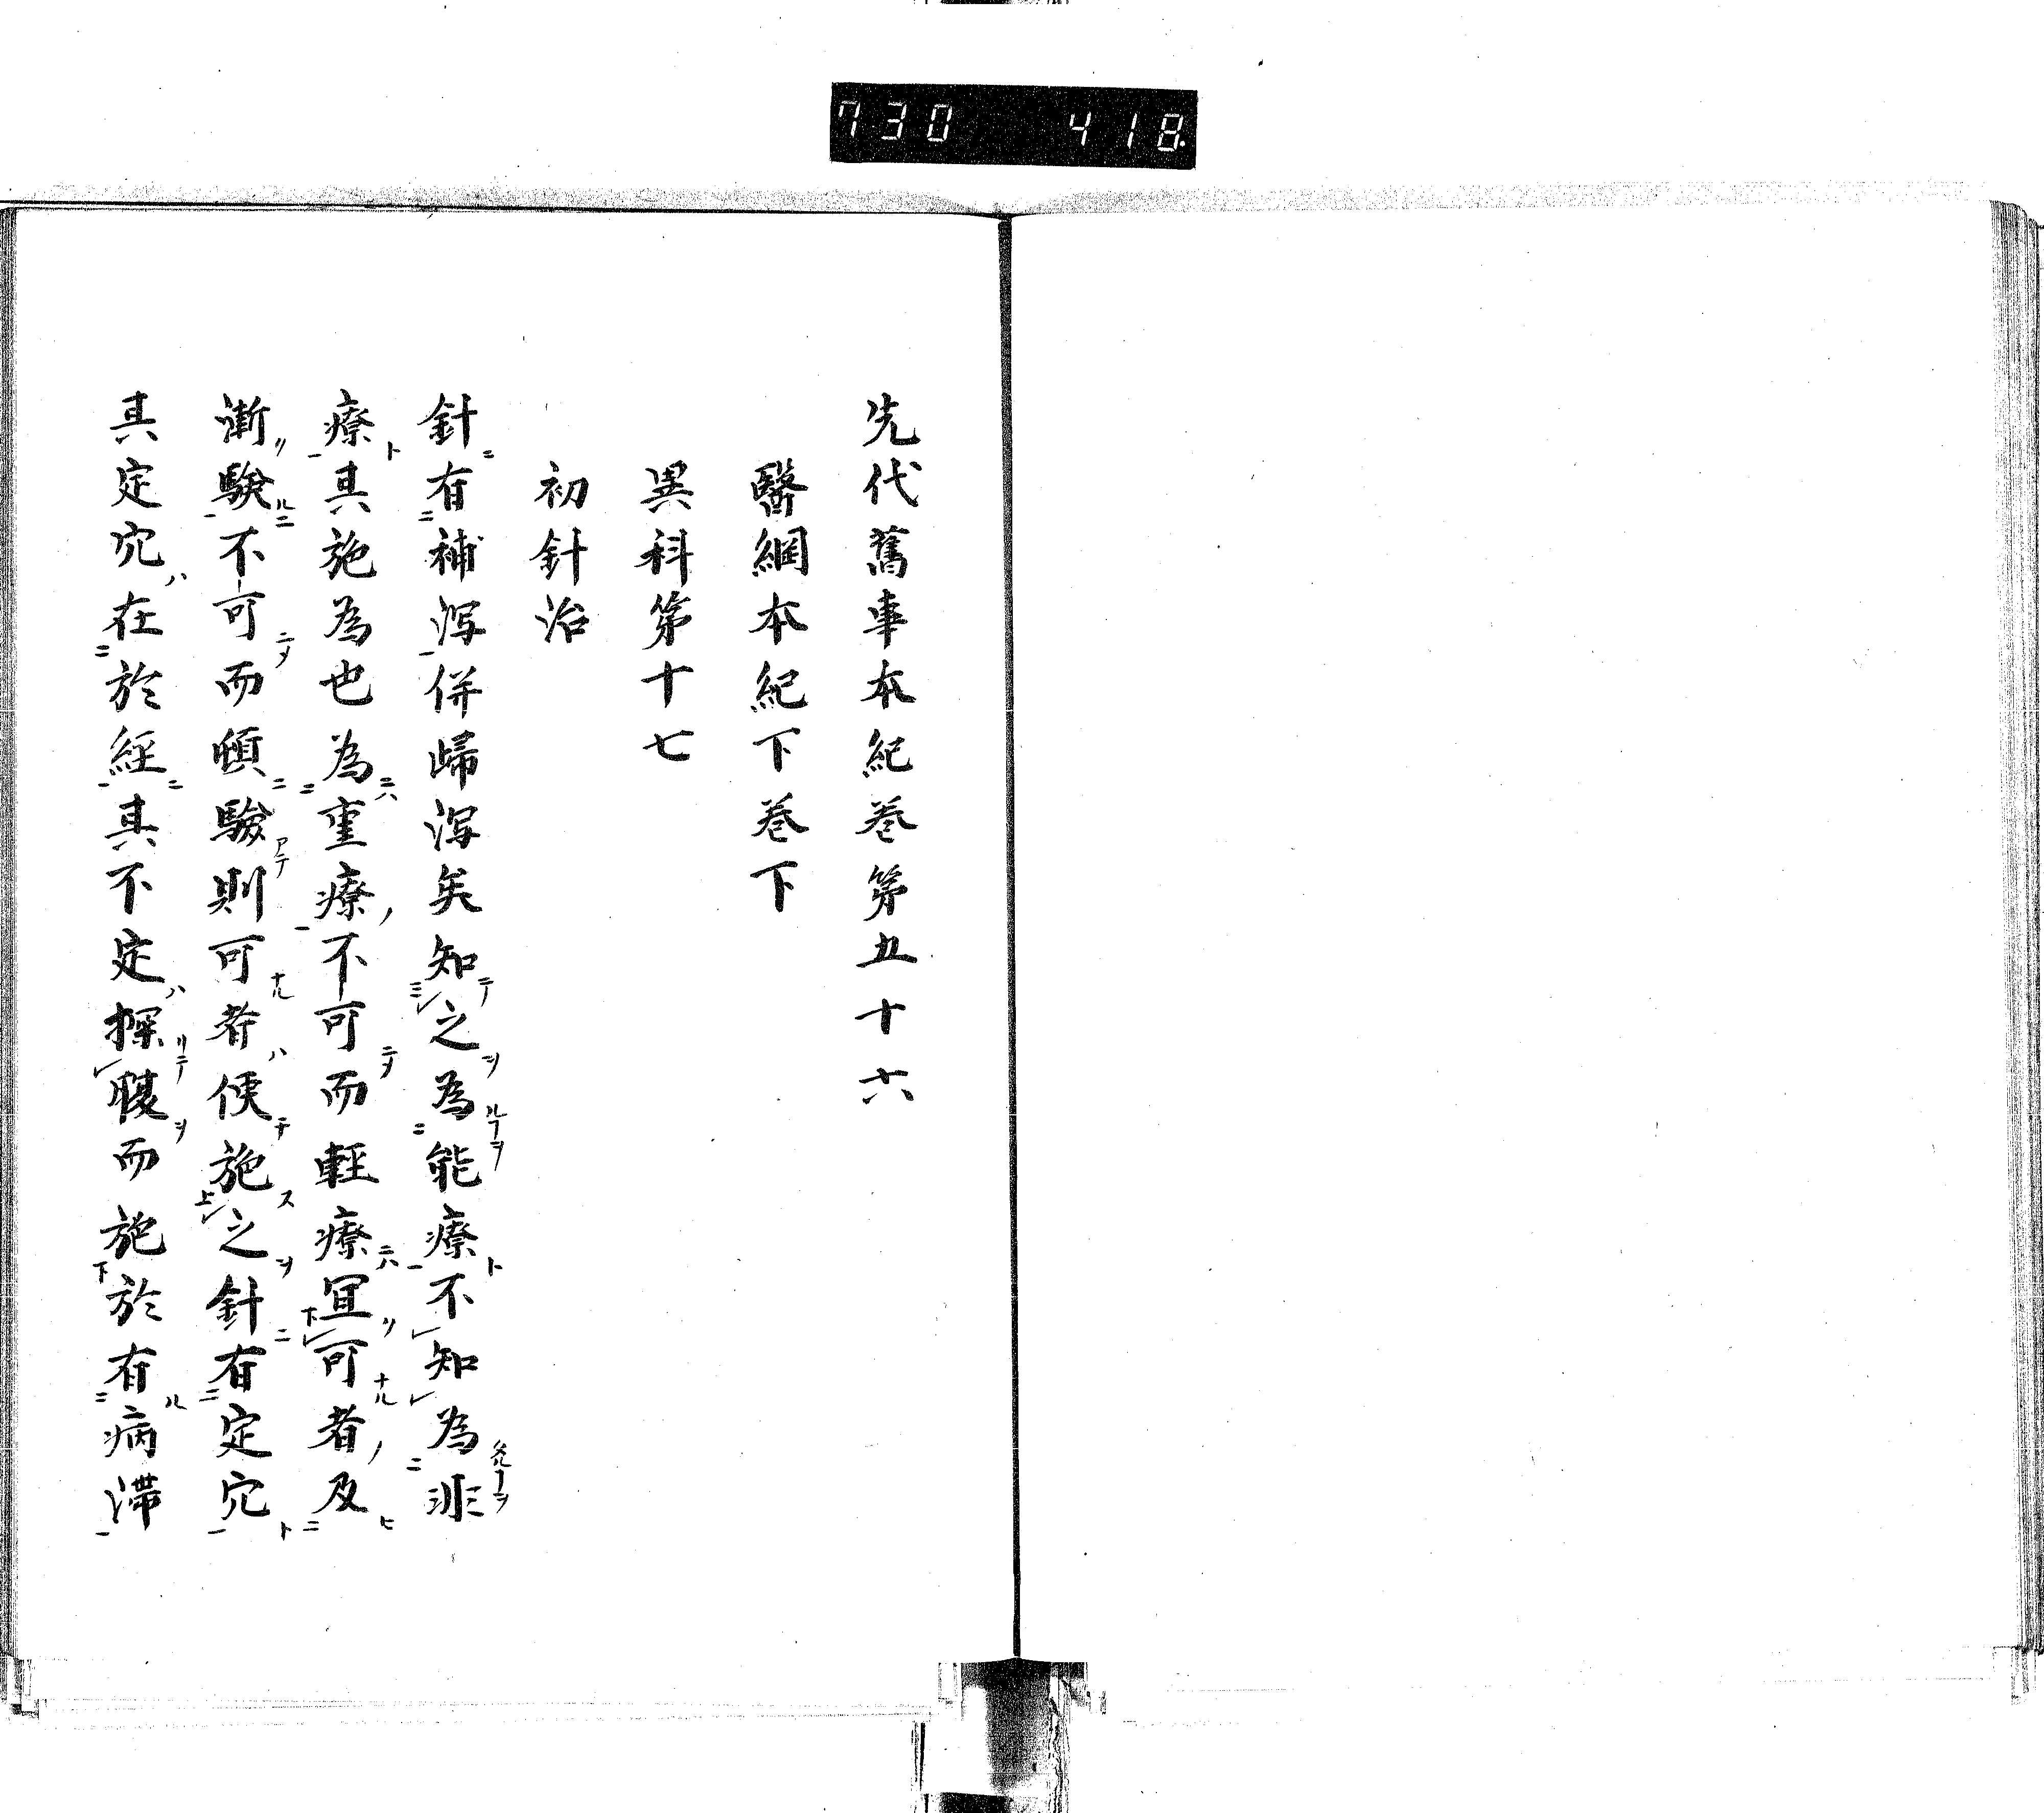 730 418
先代舊事本紀巻第五十六
醫綱本紀下巻下
異科第十七
初針治
針有補瀉併歸瀉矣知之為能療不知為非
療其施為也為重療不可而輕療冝可者及
漸驗不可而頓驗則可者便施之針有定穴
其定穴在於經其不定探腹而施於有病滞